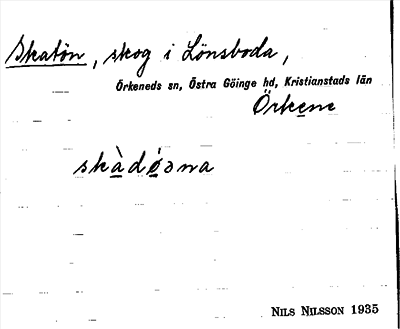 Skatön, skog i Lönsboda,
Örkeneds sn, Östra Göinge hd, Kristianstads län
Örkene
skàdǿɔna
NILS NILSSON 1935